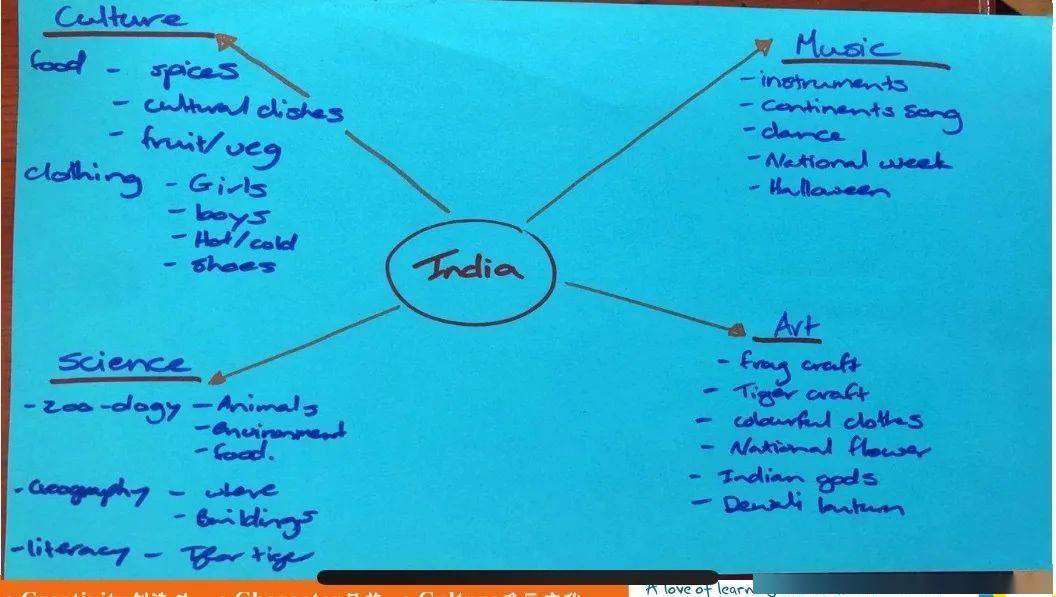 Culture
food - spices
- cultural dishes
- fruit/veg
clothing - Girls
- boys
- Hot/cold
- shoes
Music
- instruments
- Continents song
- dance
- National week
- Halloween
India
Science
- zoo-dogy - Animals
- environment
- food.
- Geography - where
- Buildings
- literacy - T for tiger
Art
- frog craft
- Tiger craft
- colourful clothes
- National flower
- Indian gods
- Dewali
A love of learn